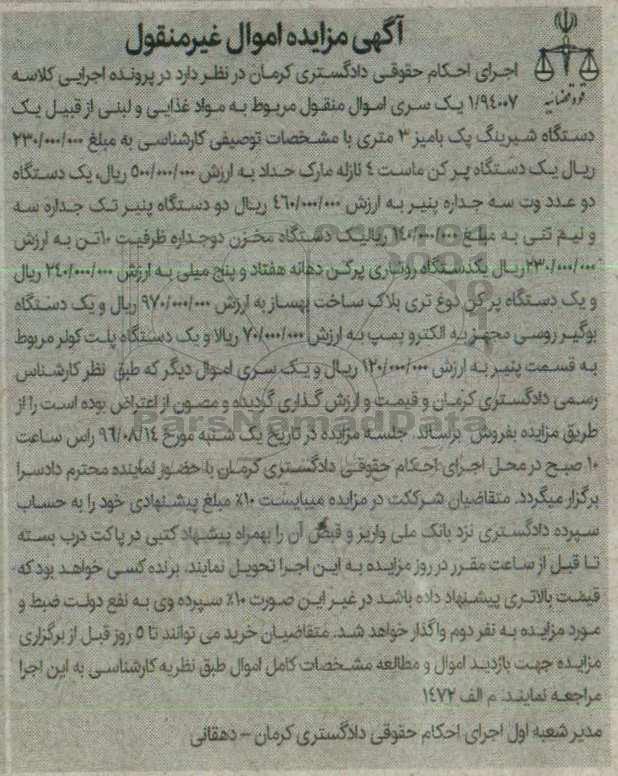 آگهی مزایده اموال غیرمنقول
قوه قضائیه
اجرای احکام حقوقی دادگستری کرمان در نظر دارد در پرونده اجرایی کلاسه
۱/۹۴۰۰۷ یک سری اموال منقول مربوط به مواد غذایی و لبنی از قبیل یک
دستگاه شیرینگ پک بامیز ۳ متری با مشخصات توصیفی کارشناسی به مبلغ ۲۳۰/۰۰۰/۰۰۰
ریال یک دستگاه پر کن ماست ٤ نازله مارک حداد به ارزش ۵۰۰/۰۰۰/۰۰۰ ریال، یک دستگاه
دو عدد وت سه جداره پنیر به ارزش ٤٦۰/۰۰۰/۰۰۰ ریال دو دستگاه پنیر تک جداره سه
و نیم تنی به مبلغ ۱٤۰/۰۰۰/۰۰۰ ریالیک دستگاه مخزن دوجداره ظرفیت ۱۰تن به ارزش
۲۳۰/۰۰۰/۰۰۰ریال یکدستگاه روتباری پرکن دهانه هفتاد و پنج میلی به ارزش ۲٤۰/۰۰۰/۰۰۰ ریال
و یک دستگاه پر کن دوغ تری بلاک ساخت بهساز به ارزش ۹۷۰/۰۰۰/۰۰۰ ریال و یک دستگاه
بوگیر روسی مجهز به الکترو پمپ به ارزش ۷۰/۰۰۰/۰۰۰ ریالا و یک دستگاه پلیت کولر مربوط
به قسمت پنیر به ارزش ۱۲۰/۰۰۰/۰۰۰ ریال و یک سری اموال دیگر که طبق نظر کارشناس
رسمی دادگستری کرمان و قیمت و ارزش گذاری گردیده و مصون از اعتراض بوده است را از
طریق مزایده بفروش برساند. جلسه مزایده در تاریخ یک شنبه مورخ ۹٦/۰۸/۱٤ راس ساعت
۱۰ صبح در محل اجرای احکام حقوقی دادگستری کرمان با حضور نماینده محترم دادسرا
برگزار میگردد. متقاضیان شرککت در مزایده میبایست ۱۰٪ مبلغ پیشنهادی خود را به حساب
سپرده دادگستری نزد بانک ملی واریز و قبض آن را بهمراه پیشنهاد کتبی در پاکت درب بسته
تا قبل از ساعت مقرر در روز مزایده به این اجرا تحویل نمایند. برنده کسی خواهد بود که
قیمت بالاتری پیشنهاد داده باشد در غیر این صورت ۱۰٪ سپرده وی به نفع دولت ضبط و
مورد مزایده به نفر دوم واگذار خواهد شد. متقاضیان خرید می توانند تا ۵ روز قبل از برگزاری
مزایده جهت بازدید اموال و مطالعه مشخصات کامل اموال طبق نظریه کارشناسی به این اجرا
مراجعه نمایند. م الف ۱٤۷۲
مدیر شعبه اول اجرای احکام حقوقی دادگستری کرمان – دهقانی
ParsNamadData